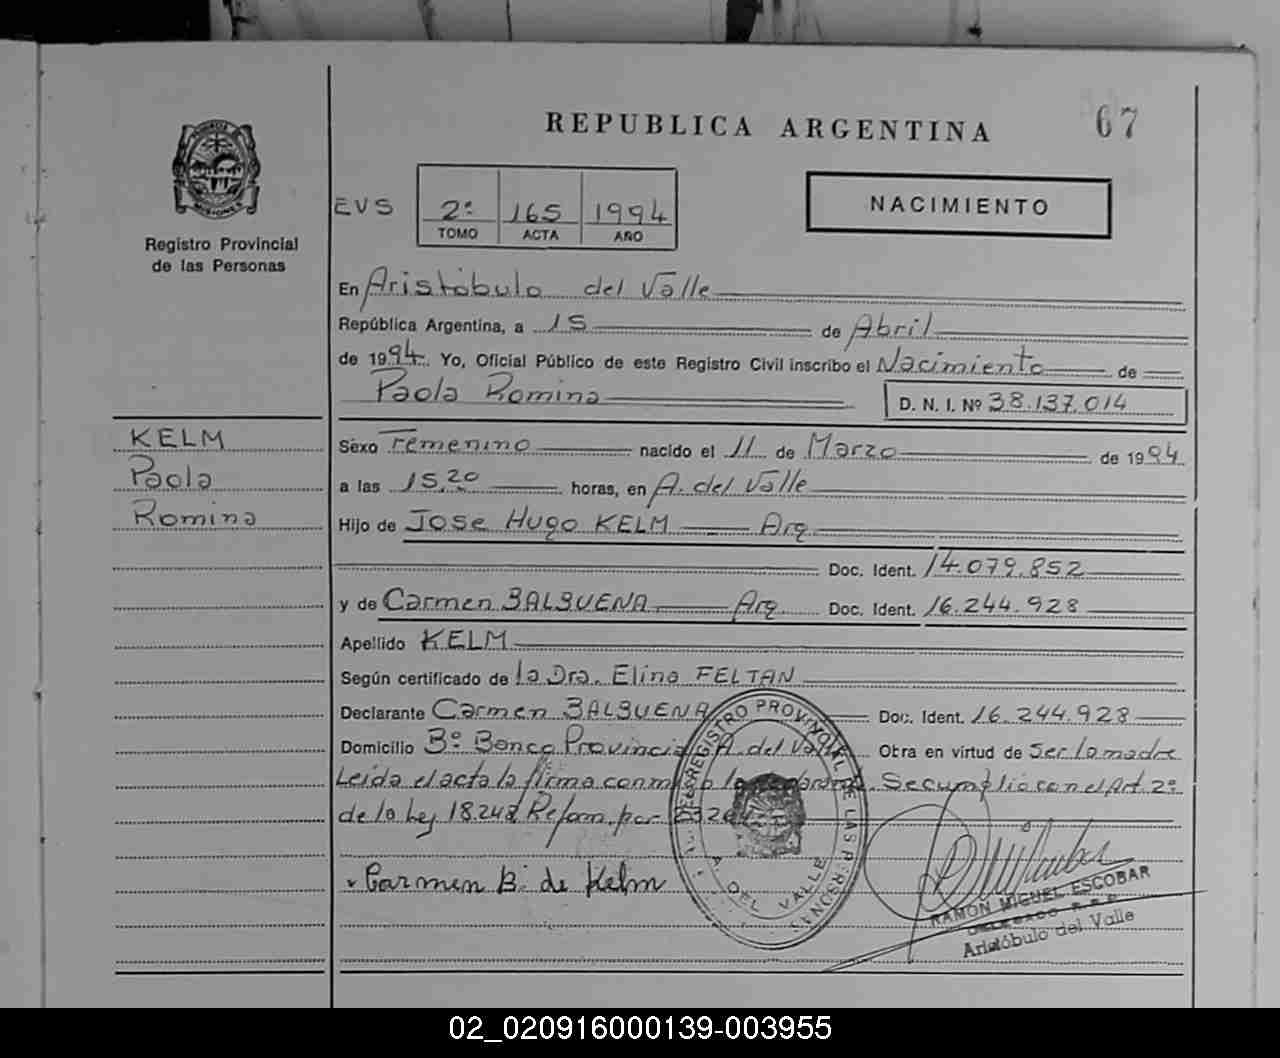 REPUBLICA ARGENTINA
67
MISIONES
Registro Provincial
de las Personas
EVS
2º 165 1994
TOMO ACTA AÑO
NACIMIENTO
En Aristóbulo del Valle
República Argentina, a 15 de Abril
de 1994. Yo, Oficial Público de este Registro Civil inscribo el Nacimiento de
Paola Romina
D. N. I. Nº 38.137.014
KELM
Paola
Romina
Sexo Femenino nacido el 11 de Marzo de 1994
a las 15,20 horas, en A. del Valle
Hijo de Jose Hugo KELM Arg.
Doc. Ident. 14.079.852
y de Carmen BALBUENA Arg. Doc. Ident. 16.244.928
Apellido KELM
Según certificado de la Dra. Elina FELTAN
Declarante Carmen BALBUENA Doc. Ident. 16.244.928
Domicilio Bº Banco Provincial A. del Valle Otra en virtud de ser la madre
Leida el acta la firma conmigo la declarante. Se cumplió con el Art. 2º
de la Ley 18.248 Reform. por
Carmen B. de Kelm
REGISTRO PROVINCIAL DE LAS PERSONAS
A. DEL VALLE
RAMON MIGUEL ESCOBAR
DELEGADO R.P.P.
Aristóbulo del Valle
02_020916000139-003955